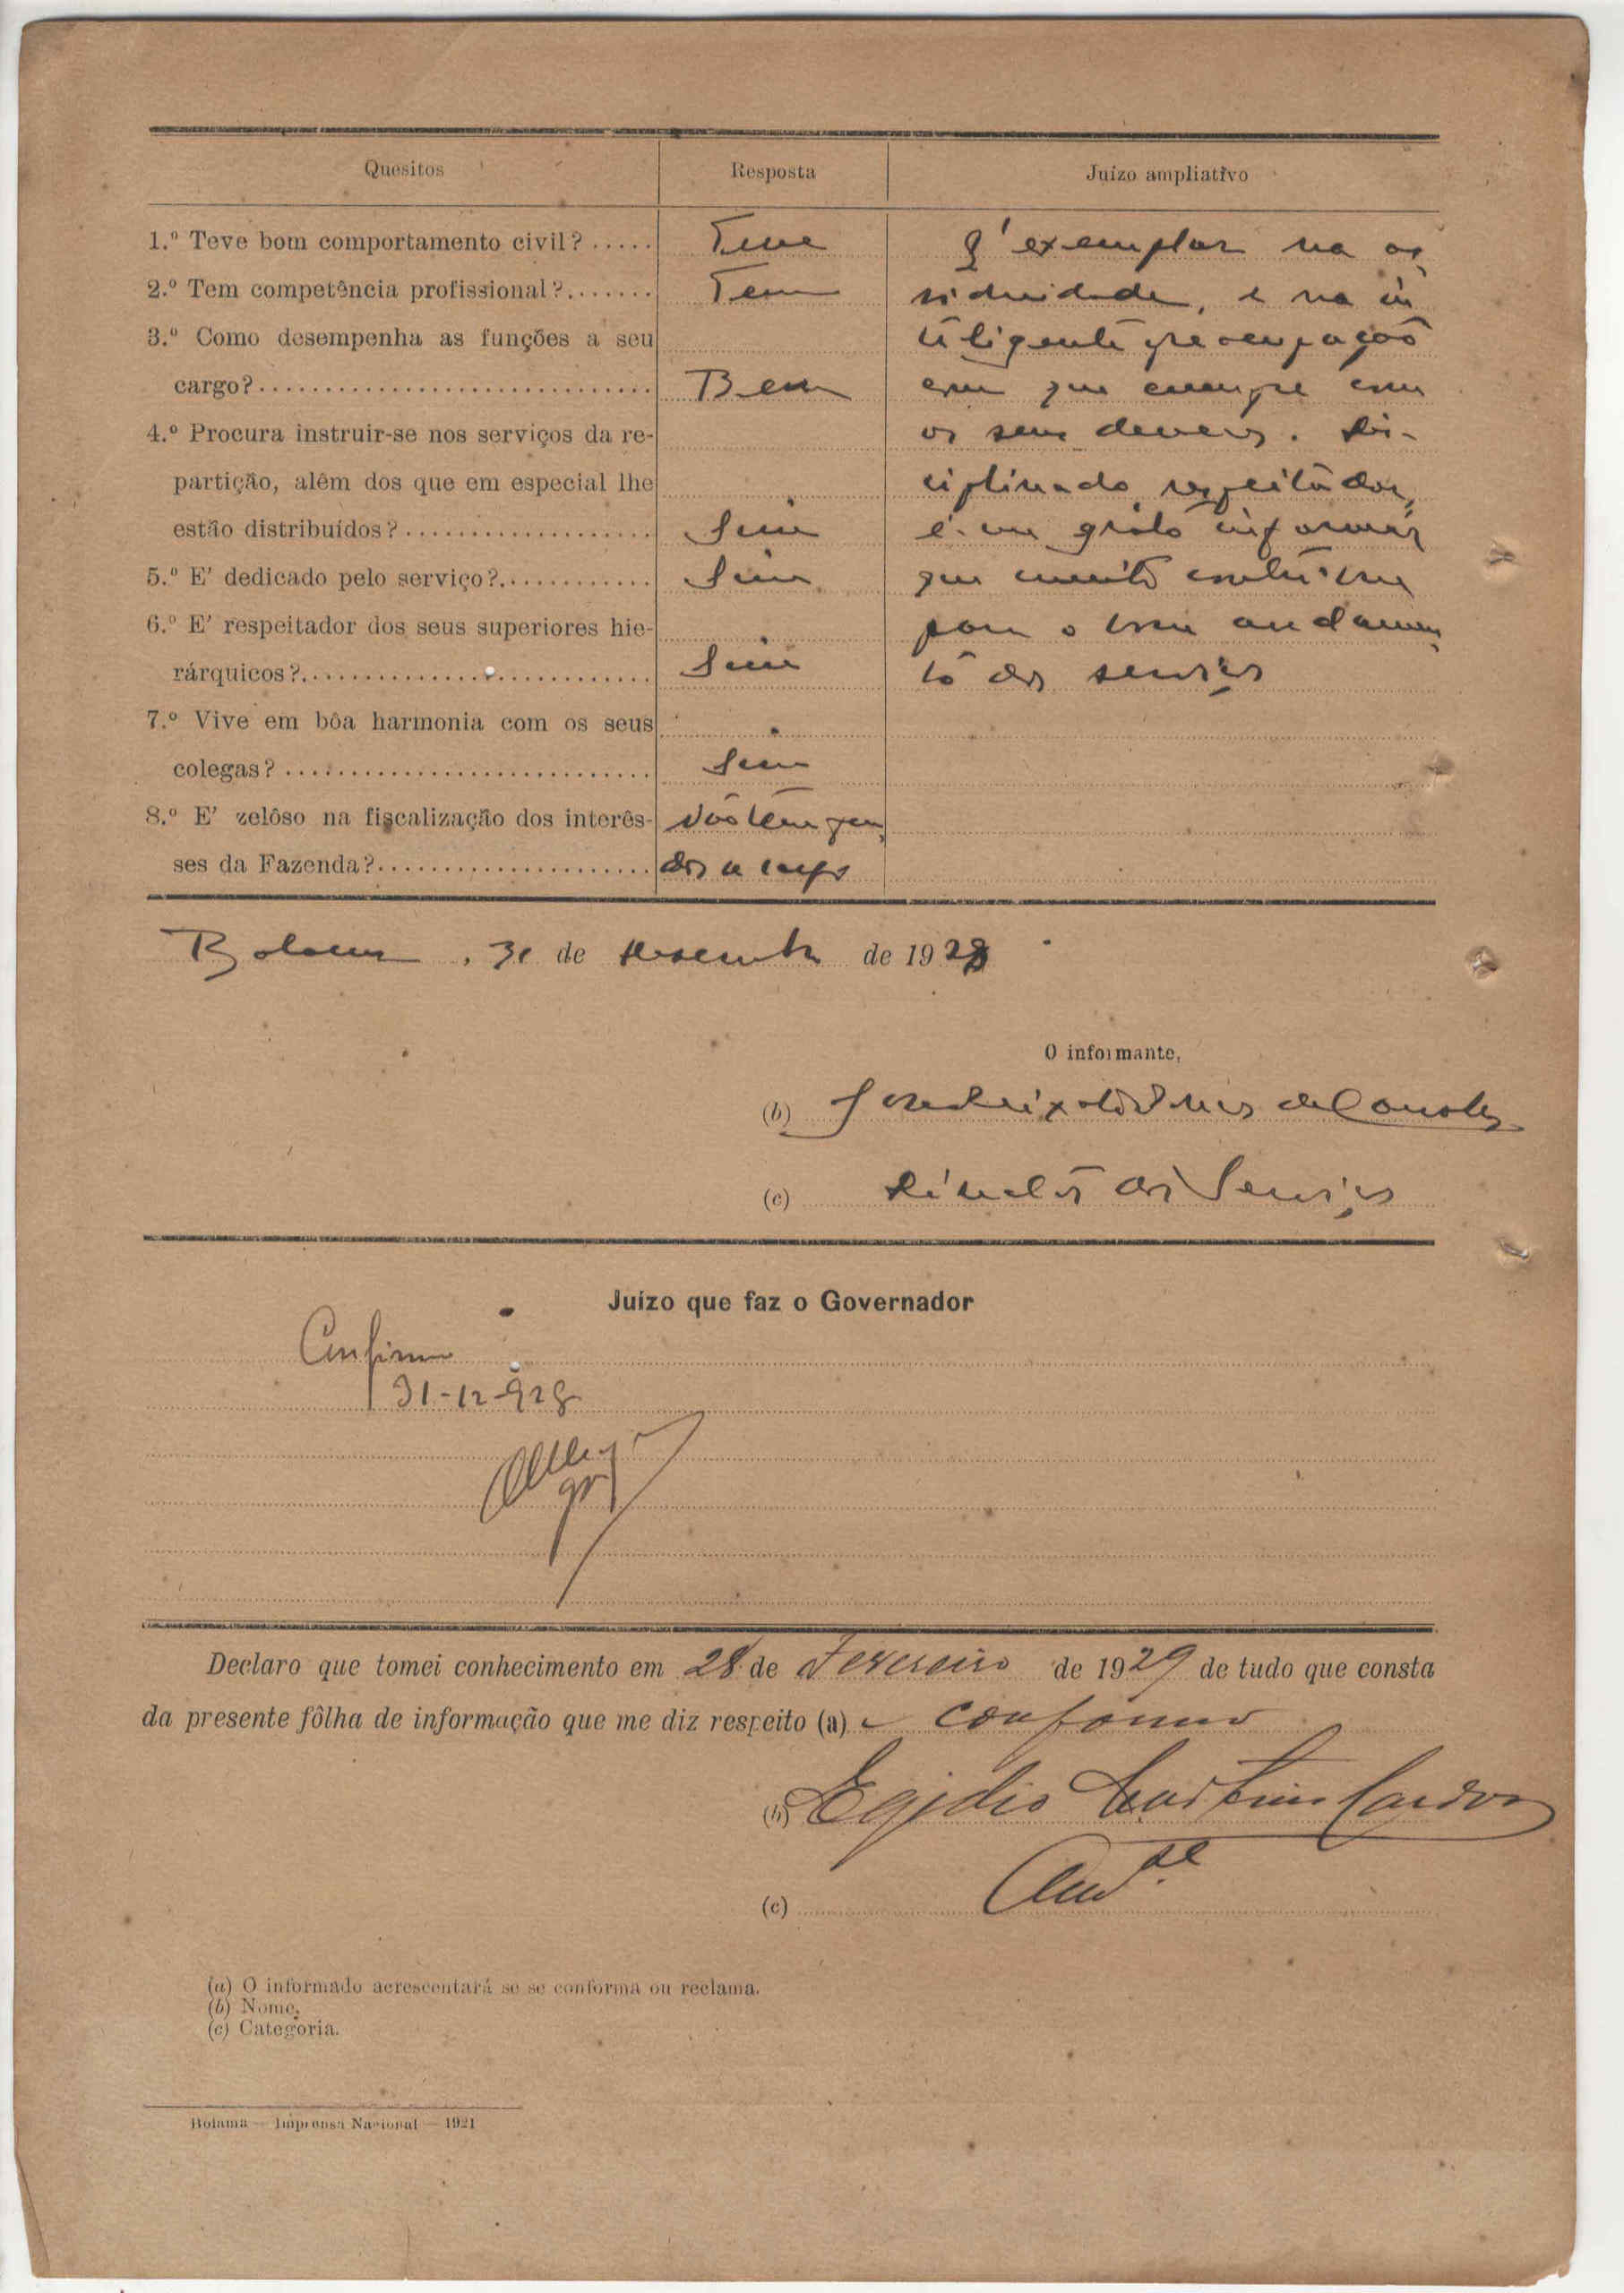 Quesitos
Resposta
Juízo ampliativo
1.º Teve bom comportamento civil? .....
Teve
2.º Tem competência profissional?.......
Tem
3.º Como desempenha as funções a seu
cargo?..............................
Bem
4.º Procura instruir-se nos serviços da re-
partição, além dos que em especial lhe
estão distribuídos?...................
Sim
5.º E' dedicado pelo serviço?............
Sim
6.º E' respeitador dos seus superiores hie-
rárquicos?...........................
Sim
7.º Vive em bôa harmonia com os seus
colegas?............................
Sim
8.º E' zelôso na fiscalização dos interês-
ses da Fazenda?.....................
Não tem
a cargo
E' exemplar na as
siduidade, e na in
teligente preocupação
em que cumpre com
os seus deveres. Dis-
ciplinado respeitador,
é-me grato informar
que muito contribue
para o bom andamen
to dos serviços
Bolama, 31 de Dezembro de 1928
O informante,
(b) José Peixoto
(c) Director dos Serviços
Juízo que faz o Governador
Confirmo
31-12-928
Declaro que tomei conhecimento em 28 de Fevereiro de 1929 de tudo que consta
da presente fôlha de informação que me diz respeito (a) e conformo
(b) Egidio Martins Cardoso
(c)
(a) O informado acrescentará se se conforma ou reclama.
(b) Nome.
(c) Categoria.
Bolama — Imprensa Nacional — 1921